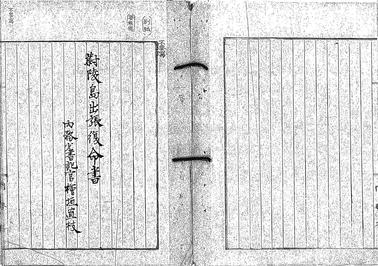 蔚陵島出張復命書
内務書記官檜垣直枝